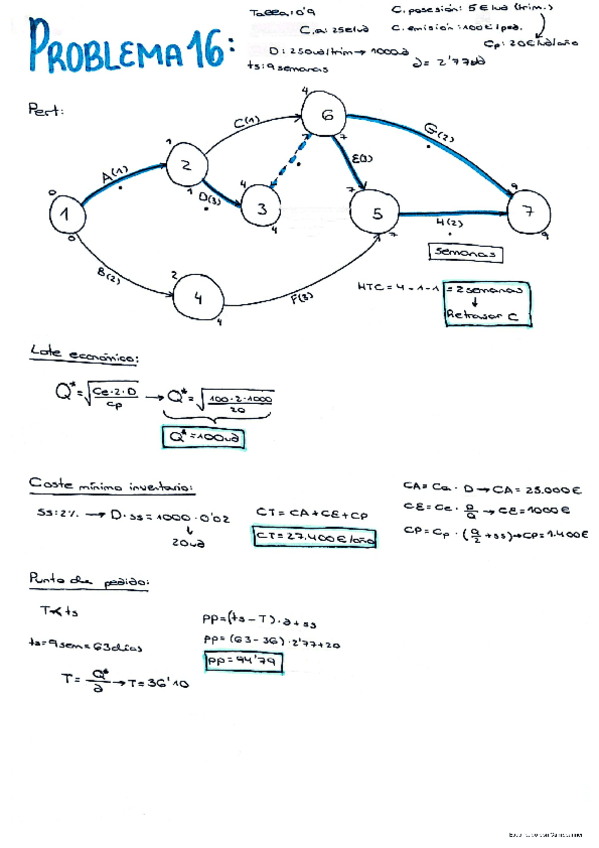 PROBLEMA 16:
C.a: 25€/ud
D: 250ud/trim → 1000ud
ts: 9 semanas
C. posesión: 5€/ud (trim.)
C. emisión: 100€/ped.
Cp: 20€/ud/año
∂ = 2'77ud
Pert:
0
1
0
A(1)
1
2
1
C(1)
4
6
7
D(3)
4
3
4
E(3)
G(2)
7
5
7
H(2)
9
7
9
B(2)
2
4
4
F(3)
semanas
HTC = 4 - 1 - 1 = 2 semanas
↓
Retrasar C
Lote económico:
Q* = √(Ce·2·D / Cp) → Q* = √(100·2·1000 / 20)
Q* = 100ud
Coste mínimo inventario:
SS: 2% → D·SS = 1000·0'02
↓
20ud
CT = CA + CE + CP
CT = 27.400€/año
CA = Ca · D → CA = 25.000€
CE = Ce · D/Q → CE = 1000€
CP = Cp · (Q/2 + SS) → CP = 1.400€
Punto de pedido:
T < ts
ts = 9 sem = 63 días
T = Q*/∂ → T = 36'10
PP = (ts - T) · ∂ + SS
PP = (63 - 36) · 2'77 + 20
PP = 94'79